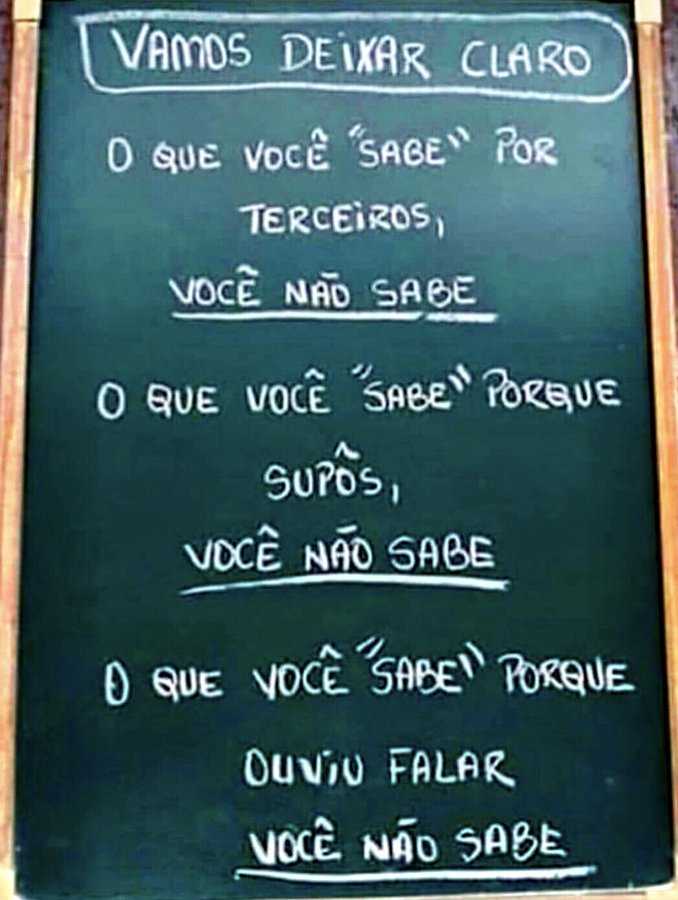 VAMOS DEIXAR CLARO
O QUE VOCÊ "SABE" POR
TERCEIROS,
VOCÊ NÃO SABE
O QUE VOCÊ "SABE" PORQUE
SUPÔS,
VOCÊ NÃO SABE
O QUE VOCÊ "SABE" PORQUE
OUVIU FALAR
VOCÊ NÃO SABE